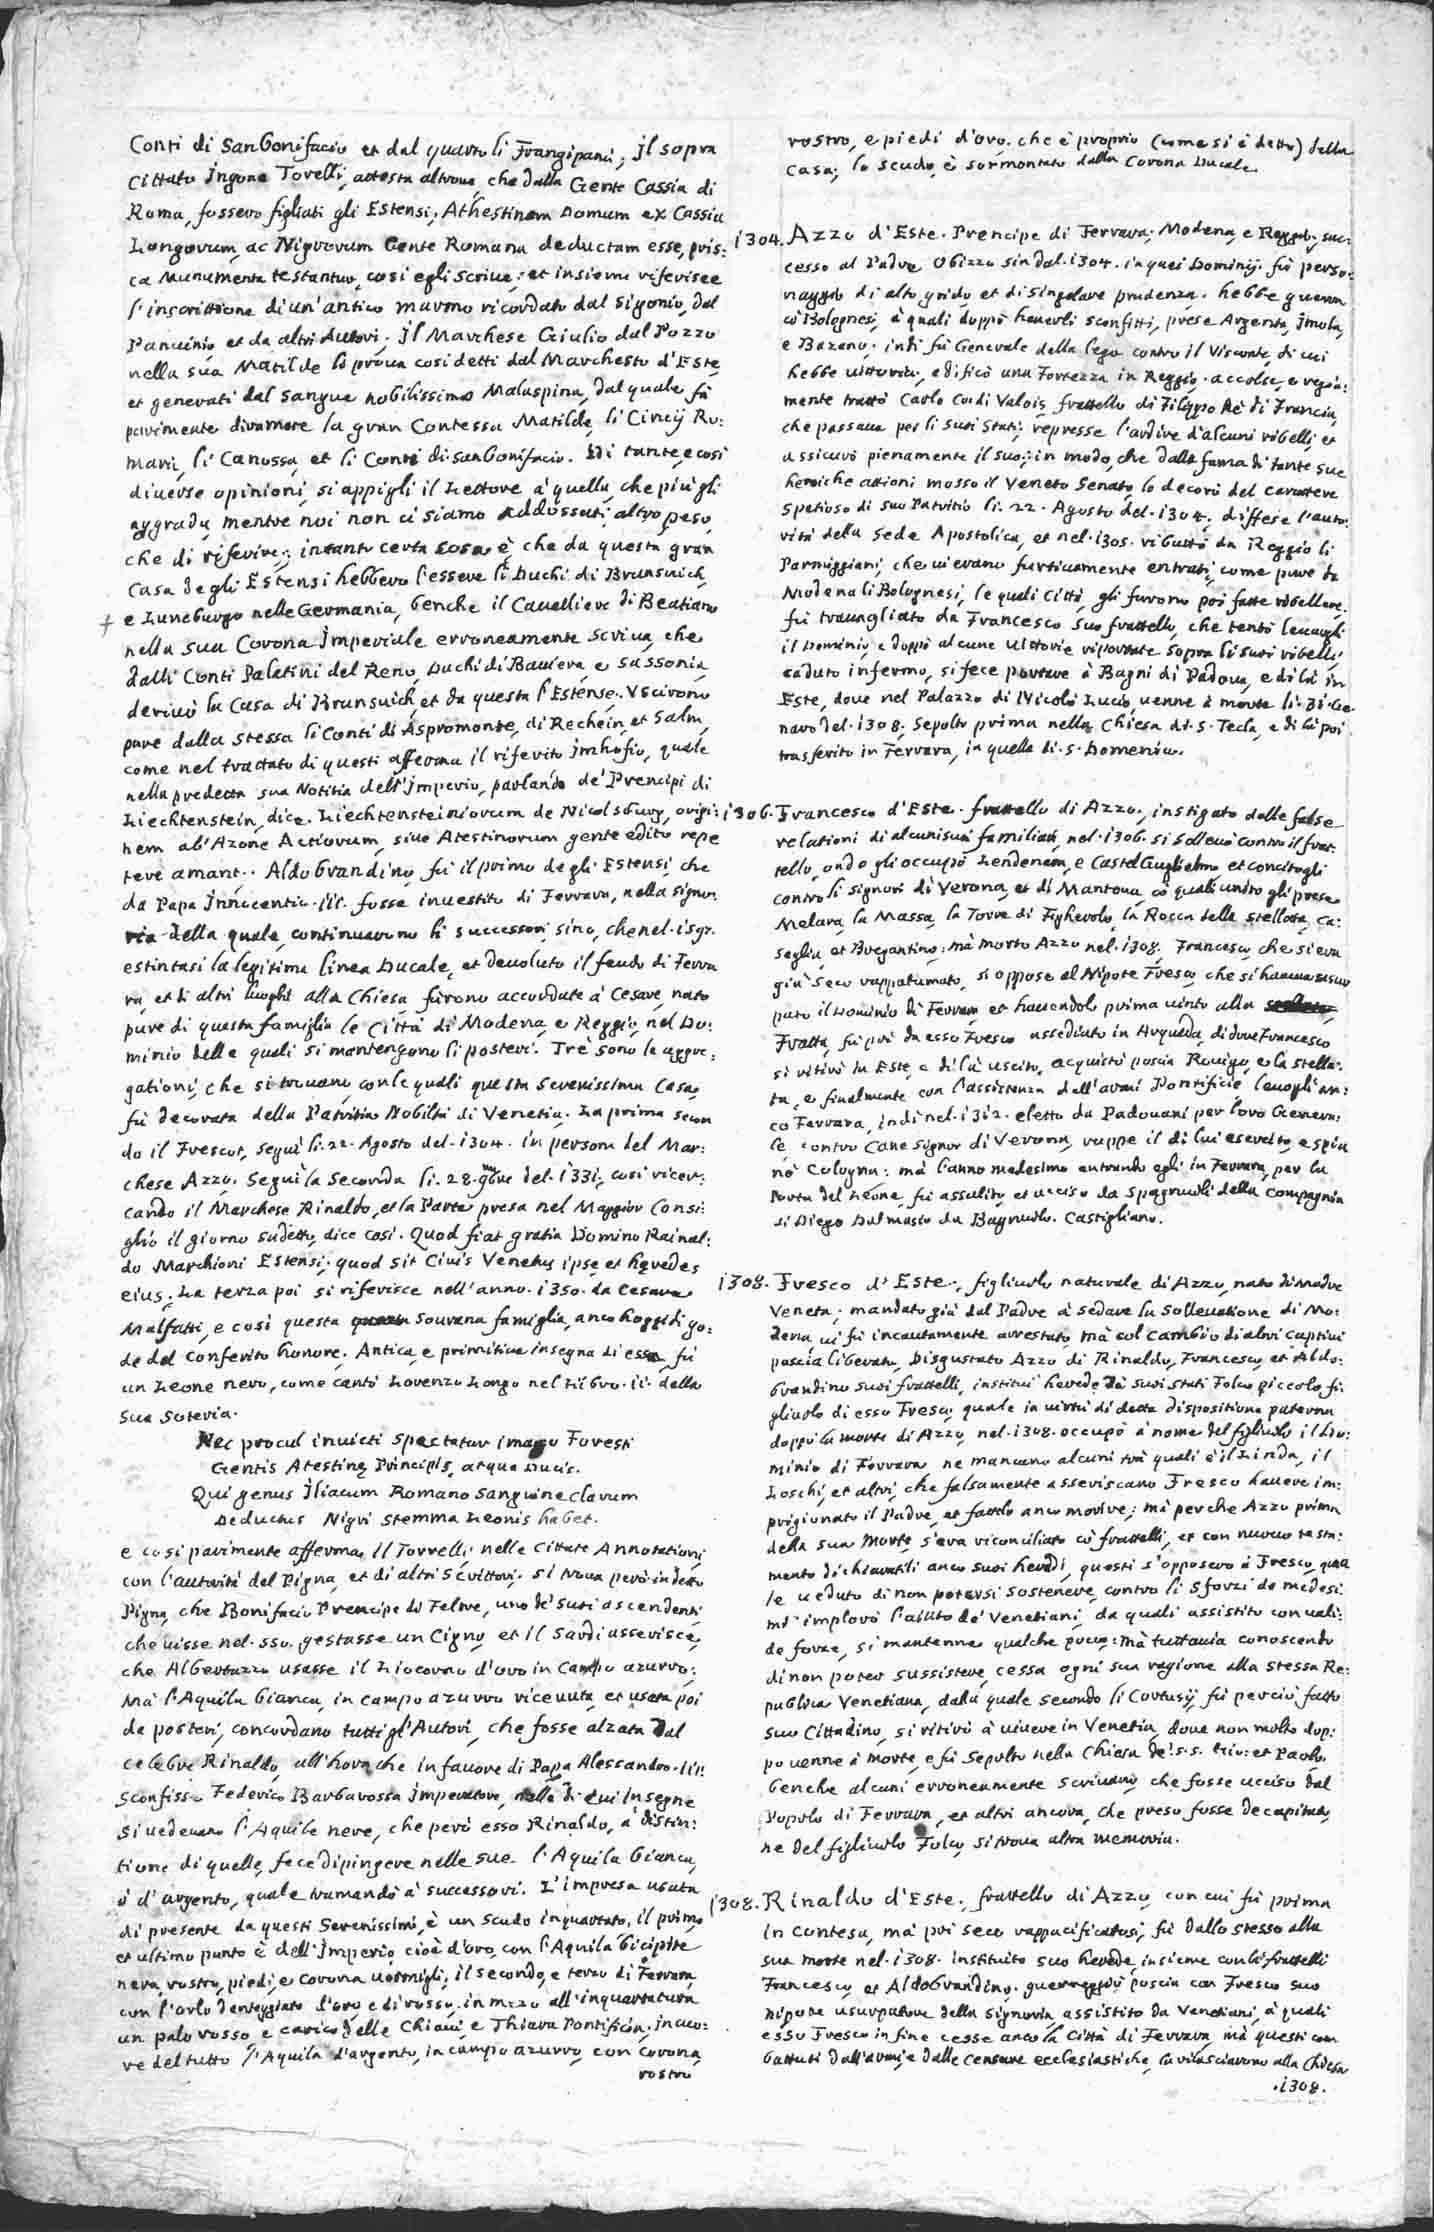 Conti di San Bonifacio et dal quarto li Frangipani; il sopra
cittato Ingone Torelli, attesta altroue, che dalla Gente Cassia di
Roma, fossero figliati gli Estensi; Athestinam Domum ex Cassia
Longorum, ac Nigrorum Gente Romana deductam esse, pris:
ca Munumenta testantur, cosi egli scriue; et insieme riferisce
l'inscrittione di un'antico marmo ricordato dal Sigonio, dal
Panuinio et da altri Autori. Il Marchese Giulio dal Pozzo
nella sua Matilde li proua cosi detti dal Marchesto d'Este,
et generati dal sangue nobilissimo Malaspina, dal quale fà
parimente diramare la gran Contessa Matilde, li Cincij Ro:
mani, li Canossa, et li Conti di San Bonifacio. Di tante, e cosi
diuerse opinioni, si appigli il Lettore à quella, che più gli
aggrada, mentre noi non ci siamo addossati altro peso,
che di riferire; intanto certa cosa è, che da questa gran
Casa degli Estensi hebbero l'essere li Duchi di Brunsuich,
e Luneburgo nelle Germania, benche il Caualliere di Beatiano
nella sua Corona Imperiale erroneamente scriua, che
dalli Conti Palatini del Reno, Duchi di Bauiera, e Sassonia,
deriuò la Casa di Brunsuich, et da questa l'Estense. Vscirono
pure dalla stessa li Conti di Aspromonte, di Rechein, et Salm,
come nel trattato di questi afferma il riferito Imhofio, quale
nella predetta sua Notitia dell'Imperio, parlando de' Prencipi di
Liechtenstein, dice. Liechtensteiniorum de Nicolsburg, origi:
nem ab Azone Actiorum, siue Atestinorum gente edito repe
tere amant. Aldobrandino, fù il primo degli Estensi, che
da Papa Innocentio III. fosse inuestito di Ferrara, nella signo:
ria della quale, continuarono li successori, sino, che nel 1597.
estintasi la legitima linea Ducale, et deuoluto il feudo di Ferra
ra, et di altri luoghi alla Chiesa, furono accordate à Cesare, nato
pure di questa famiglia le Città di Modena, e Reggio, nel Do:
minio delle quali si mantengono li posteri. Trè sono le aggre:
gationi, che si trouano, con le quali questa Serenissima Casa,
fù decorata della Patritia Nobiltà di Venetia. La prima secon
do il Frescot, seguì li 22. Agosto del 1304. in persona del Mar:
chese Azzo. Seguì la seconda li 28. 9mbre del 1331, cosi ricer:
cando il Marchese Rinaldo, et la Parte presa nel Maggior Consi:
glio il giorno sudetto, dice cosi. Quod fiat gratia Domino Rainal:
do Marchioni Estensi; quod sit Ciuis Venetus ipse et hęredes
eius. La terza poi si riferisce nell'anno 1350. da Cesare
Malfatti, e cosi questa sourana famiglia, anco hoggidi go:
de del conferito honore. Antica, e primitiua insegna di essa, fù
un Leone nero, come cantò Lorenzo Longo nel Libro II. della
sua Soteria.
Nec procul inuicti spectatur imago Foresti
Gentis Atestinę Principis, atque Ducis.
Qui genus Iliacum Romano sanguine clarum
Deductus Nigri stemma Leonis habet.
e cosi parimente afferma, il Torrelli nelle cittate Annotationi,
con l'autorità del Pigna, et di altri scrittori. Si troua però in detto
Pigna, che Bonifacio Prencipe di Feltre, uno de' suoi ascendenti,
che uisse nel 550. gestasse un Cigno, et il Sardi asserisce,
che Albertazzo usasse il Liocorno d'oro in Campo azurro:
Mà l'Aquila bianca, in campo azurro riceuuta, et usata poi
da posteri, concordano tutti gl'Autori, che fosse alzata dal
celebre Rinaldo, all'hora che in fauore di Papa Alessandro III.
sconfisse Federico Barbarossa Imperatore, nelle di cui insegne
si uedeuano l'Aquile nere, che però esso Rinaldo, à distin:
tione di quelle, fece dipingere nelle sue l'Aquila bianca,
ò d'argento, quale tramandò à successori. L'impresa usata
di presente da questi Serenissimi, è un scudo inquartato, il primo
et ultimo punto è dell'Imperio, cioè d'oro, con l'Aquila bicipite
nera, rostro, piedi, e corona uermigli; il secondo, e terzo di Ferrara,
con l'orlo denteggiato d'oro, e di rosso, in mezo all'inquartatura
un palo rosso e carico delle Chiaui, e Thiara Pontificia, in cuo:
re del tutto l'Aquila d'argento, in campo azurro, con corona,
rostro
rostro, e piedi d'oro, che è proprio (come si è detto) della
Casa; lo scudo è sormontato dalla Corona Ducale.
1304. Azzo d'Este. Prencipe di Ferrara, Modena, e Reggio, suc:
cesso al Padre Obizzo sin dal 1304. in quei Dominij fù perso:
naggio di alto grido et di singolare prudenza. hebbe guerra
cò Bolognesi, à quali doppo hauerli sconfitti, prese Argenta, Imola,
e Bazano; indi fù Generale della lega contro il Visconte, di cui
hebbe uittoria, edificò una Fortezza in Reggio. accolse, e regia:
mente trattò Carlo Co: di Valois, frattello di Filippo Rè di Francia,
che passaua per li suoi stati; represse l'ardire d'alcuni ribelli, et
assicurò pienamente il suo; in modo, che dalla fama di tante sue
heroiche attioni mosso il Veneto Senato, lo decorò del carattere
spetioso di suo Patritio li 22. Agosto del 1304. diffese l'auto:
rità della Sede Apostolica, et nel 1305. ributtò da Reggio li
Parmiggiani, che ui erano furtiuamente entrati, come pure da
Modena li Bolognesi, le quali Città, gli furono poi fatte ribellare.
fù trauagliato da Francesco suo frattello, che tentò leuargli
il Dominio, e doppò alcune uittorie riportate sopra li suoi ribelli,
caduto infermo, si fece portare à Bagni di Padoua, e di là in
Este, doue nel Palazzo di Nicolò Lucio, uenne à morte li 31 Ge:
naro del 1308. Sepolto prima nella Chiesa di S. Tecla, e di là poi
trasferito in Ferrara, in quella di S. Domenico.
1306. Francesco d'Este. frattello di Azzo, instigato dalle false
relationi di alcuni suoi familiari, nel 1306. si solleuò contro il frat:
tello, onde gli occupò Lendenara, e Castel Guglielmo et concitogli
contro li signori di Verona, et di Mantoua, cò quali unito gli prese
Melara, la Massa, la Torre di Figherolo, la Rocca della Stellata, Ca:
seglia, et Bregantino; mà morto Azzo nel 1308. Francesco, che si era
già seco rappatumato, si oppose al Nipote Fresco, che si haueua usur
pato il Dominio di Ferrara, et hauendolo prima uinto alla
Fratta, fù poi da esso Fresco assediato in Arquada, di doue Francesco
si ritirò in Este, e di là uscito, acquistò poscia Rouigo, e la Stella:
ta, e finalmente con l'assistenza dell'armi Pontificie leuogli an:
co Ferrara, indi nel 1312. eletto da Padouani per loro Genera:
le contro Cane Signor di Verona, ruppe il di lui esercito, e spia
nò Cologna: mà l'anno medesimo entrando egli in Ferrara, per la
Porta del Leone, fù assalito, et ucciso da Spagnuoli della compagnia
di Diego Dalmasio da Bagnuolo. Castigliano.
1308. Fresco d'Este, figliuolo naturale di Azzo, nato di Madre
Veneta, mandato già dal Padre à sedare la solleuatione di Mo:
dena, ui fù incautamente arrestato, mà col cambio di altri captiui
poscia liberato. Disgustato Azzo di Rinaldo, Francesco, et Aldo:
brandino suoi frattelli, instituì herede de' suoi stati Folco piccolo fi:
gliuolo di esso Fresco, quale in uirtù di detta dispositione paterna
doppò la morte di Azzo, nel 1308. occupò à nome del figliuolo il Do:
minio di Ferrara, ne mancano alcuni trà quali è il Linda, il
Loschi, et altri, che falsamente asseriscano Fresco hauere im:
prigionato il Padre, et fattolo anco morire; mà perche Azzo prima
della sua Morte s'era riconciliato cò frattelli, et con nuouo testa:
mento dichiaratili anco suoi heredi, questi s'opposero à Fresco, qua
le ueduto di non potersi sostenere, contro li sforzi de medesi
mi implorò l'aiuto de' Venetiani, da quali assistito con uali:
de forze, si mantenne qualche poco; mà tuttauia conoscendo
di non poter sussistere, cessa ogni sua ragione alla stessa Re:
publica Venetiana, dalla quale secondo li Cortusij, fù perciò fatto
suo Cittadino, si ritirò à uiuere in Venetia, doue non molto dop:
po uenne à morte, e fù sepolto nella Chiesa de' S.S. Gio: et Paolo.
benche alcuni erroneamente scriuano, che fosse ucciso dal
Popolo di Ferrara, et altri ancora, che preso fosse decapitato,
ne del figliuolo Folco, si troua altra memoria.
1308. Rinaldo d'Este, frattello di Azzo, con cui fù prima
in contesa, mà poi seco rappacificatosi, fù dallo stesso alla
sua morte nel 1308. instituito suo herede, insieme con li frattelli
Francesco, et Aldobrandino. guerreggiò poscia con Fresco suo
nipote usurpatore della signoria, assistito da Venetiani, à quali
esso Fresco in fine cesse anco la Città di Ferrara, mà questi com
battuti dall'armi, e dalle censure ecclesiastiche, la rilasciarono alla Chiesa
.1308.